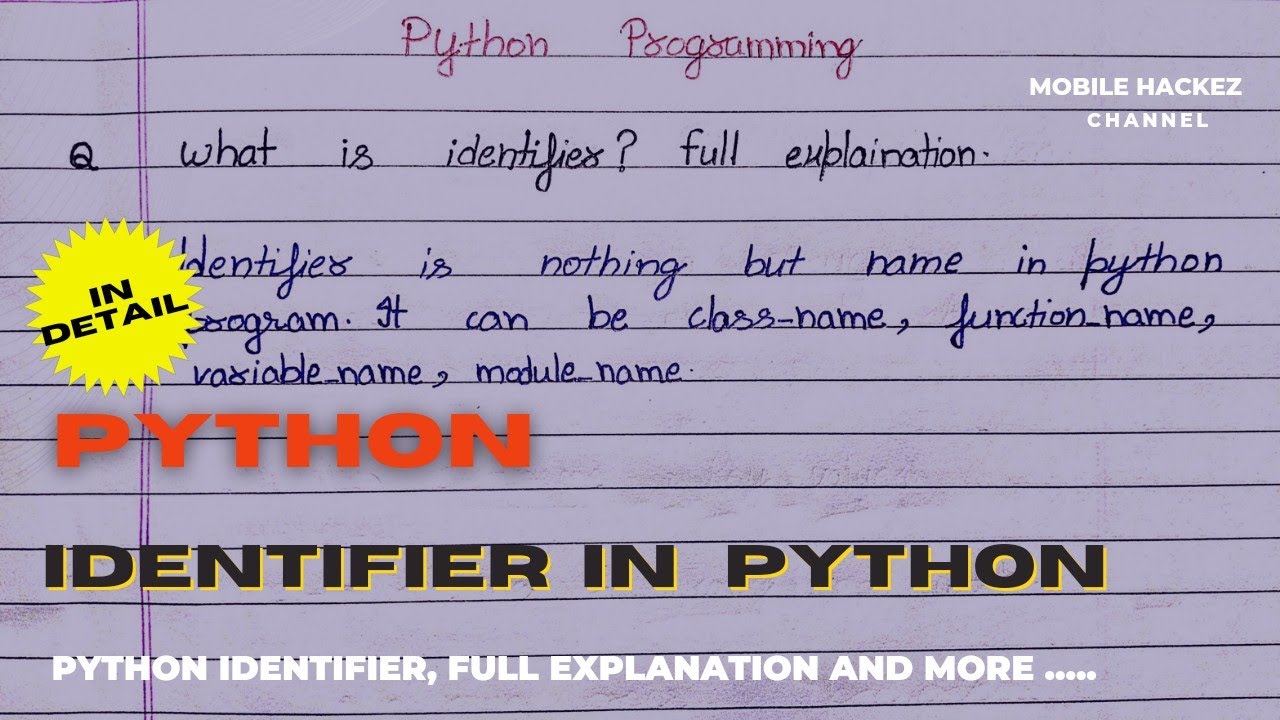 Python Programming
MOBILE HACKEZ
CHANNEL
Q What is identifier? full explaination.
Identifier is nothing but name in python
IN
DETAIL
program. It can be class_name, function_name,
variable_name, module_name.
PYTHON
IDENTIFIER IN PYTHON
PYTHON IDENTIFIER, FULL EXPLANATION AND MORE .....